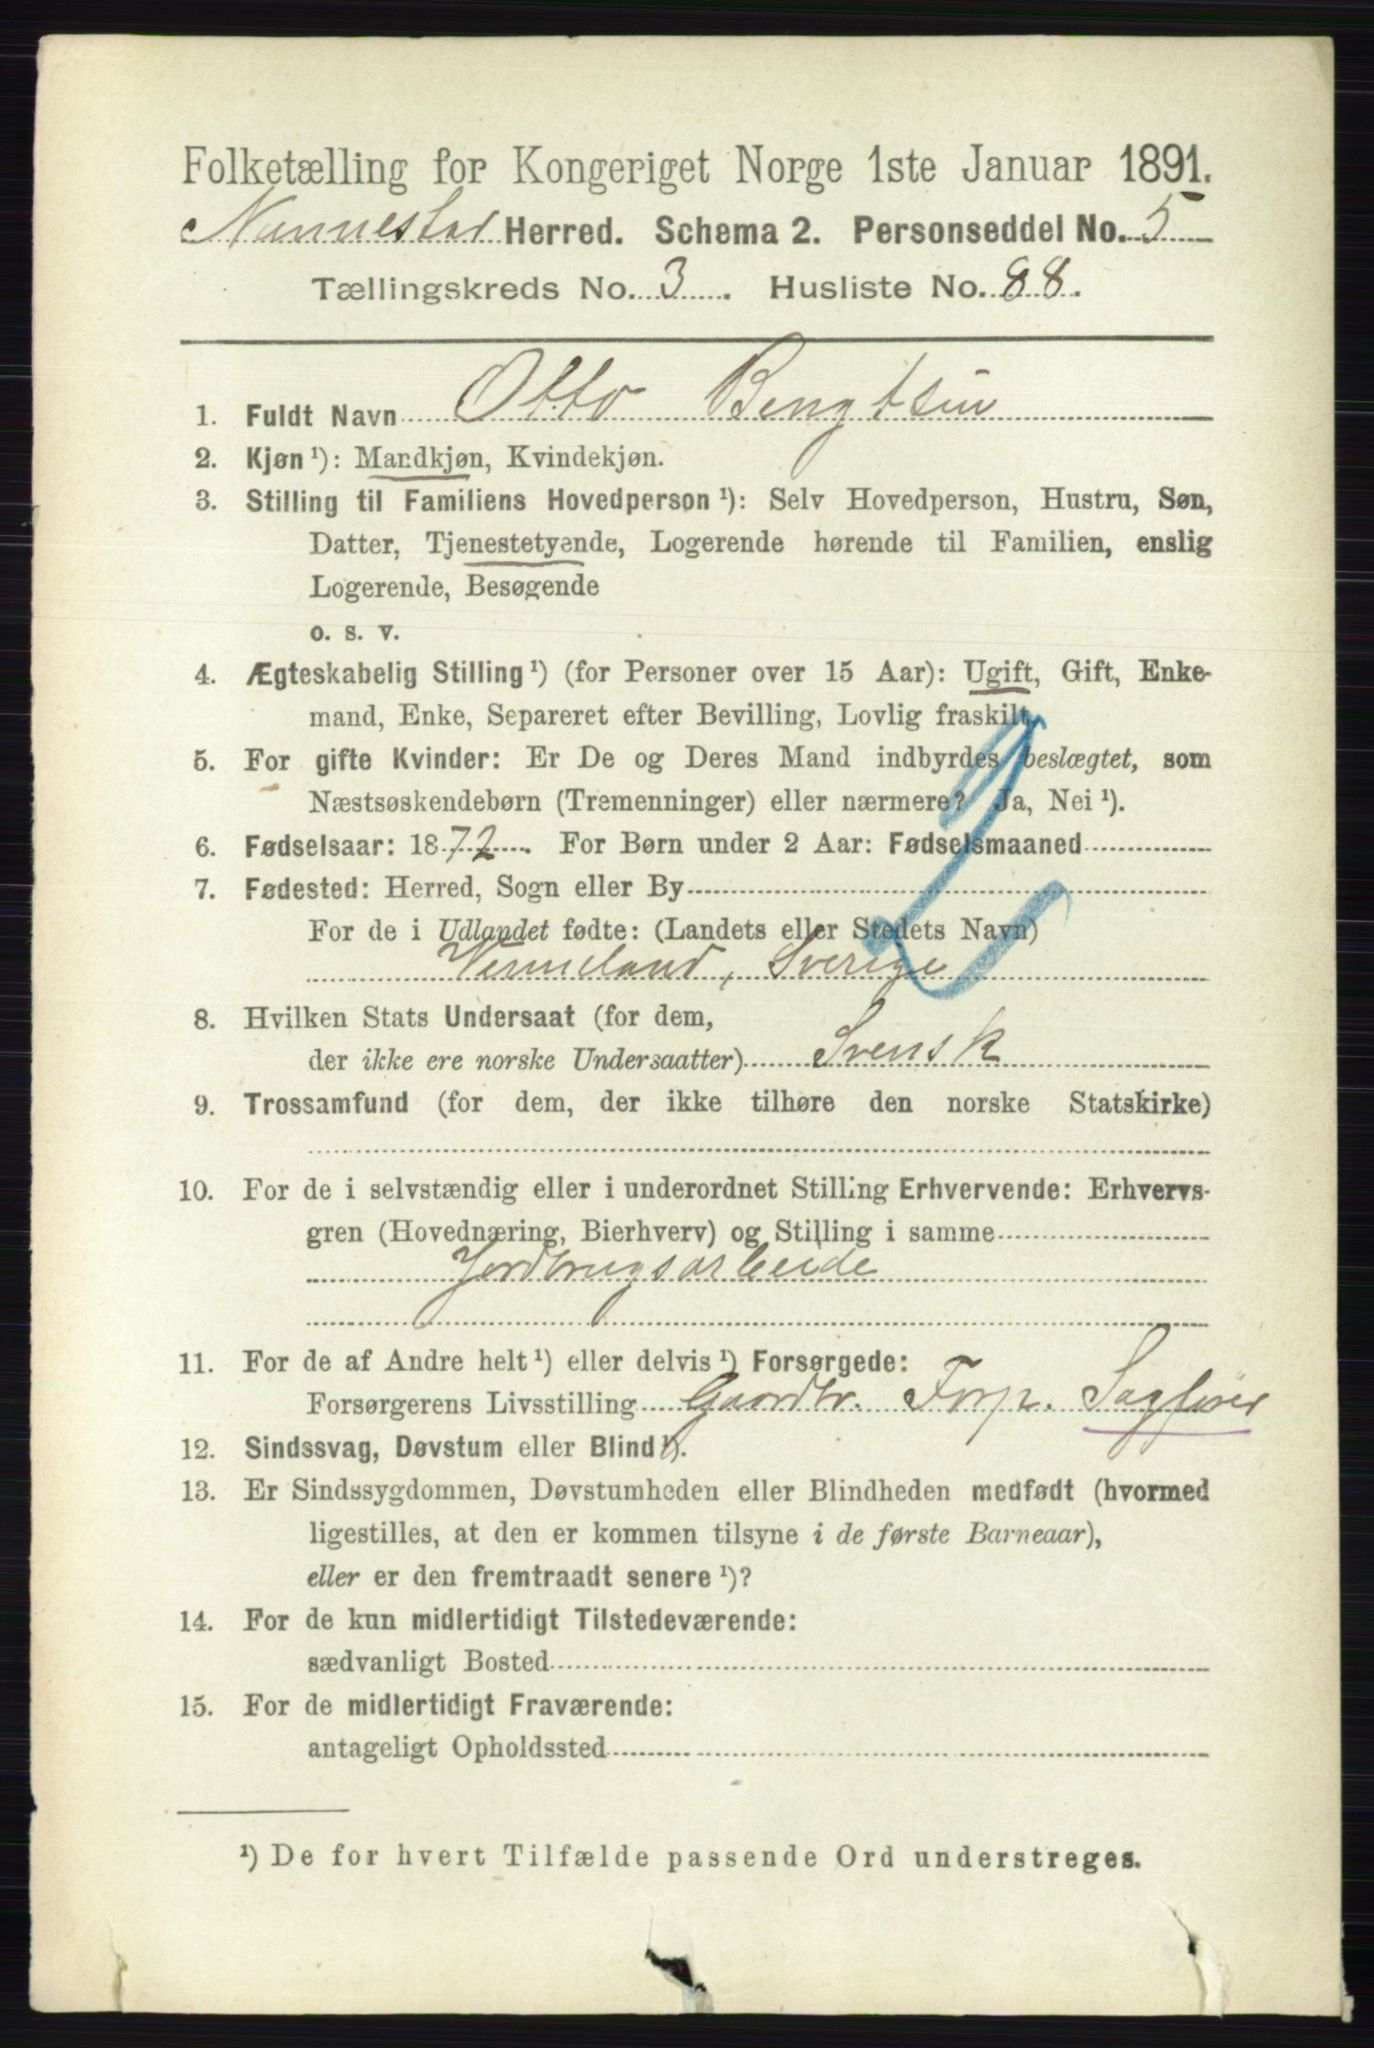 Folketælling for Kongeriget Norge 1ste Januar 1891.
Nannestad Herred. Schema 2. Personseddel No. 5
Tællingskreds No. 3. Husliste No. 88.
1. Fuldt Navn Otto Bengtsen
2. Kjøn ¹): Mandkjøn, Kvindekjøn.
3. Stilling til Familiens Hovedperson ¹): Selv Hovedperson, Hustru, Søn,
Datter, Tjenestetyende, Logerende hørende til Familien, enslig
Logerende, Besøgende
o. s. v.
4. Ægteskabelig Stilling ¹) (for Personer over 15 Aar): Ugift, Gift, Enke-
mand, Enke, Separeret efter Bevilling, Lovlig fraskilt.
5. For gifte Kvinder: Er De og Deres Mand indbyrdes beslægtet, som
Næstsøskendebørn (Tremenninger) eller nærmere? Ja, Nei ¹).
6. Fødselsaar: 1872. For Børn under 2 Aar: Fødselsmaaned
7. Fødested: Herred, Sogn eller By
For de i Udlandet fødte: (Landets eller Stedets Navn)
Vermeland, Sverige
8. Hvilken Stats Undersaat (for dem,
der ikke ere norske Undersaatter) Svensk
9. Trossamfund (for dem, der ikke tilhøre den norske Statskirke)
10. For de i selvstændig eller i underordnet Stilling Erhvervende: Erhvervs-
gren (Hovednæring, Bierhverv) og Stilling i samme
Jordbrugsarbeide
11. For de af Andre helt ¹) eller delvis ¹) Forsørgede:
Forsørgerens Livsstilling Gaardbr. Forp. Sagfører
12. Sindssvag, Døvstum eller Blind ¹).
13. Er Sindssygdommen, Døvstumheden eller Blindheden medfødt (hvormed
ligestilles, at den er kommen tilsyne i de første Barneaar),
eller er den fremtraadt senere ¹)?
14. For de kun midlertidigt Tilstedeværende:
sædvanligt Bosted
15. For de midlertidigt Fraværende:
antageligt Opholdssted
¹) De for hvert Tilfælde passende Ord understreges.